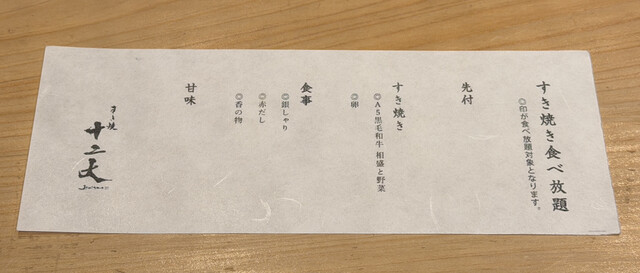 すき焼き食べ放題
◎印が食べ放題対象となります。
先付
すき焼き
◎A5黒毛和牛 相盛と野菜
◎卵
食事
◎銀しゃり
◎赤だし
◎香の物
甘味
すき焼
十二天